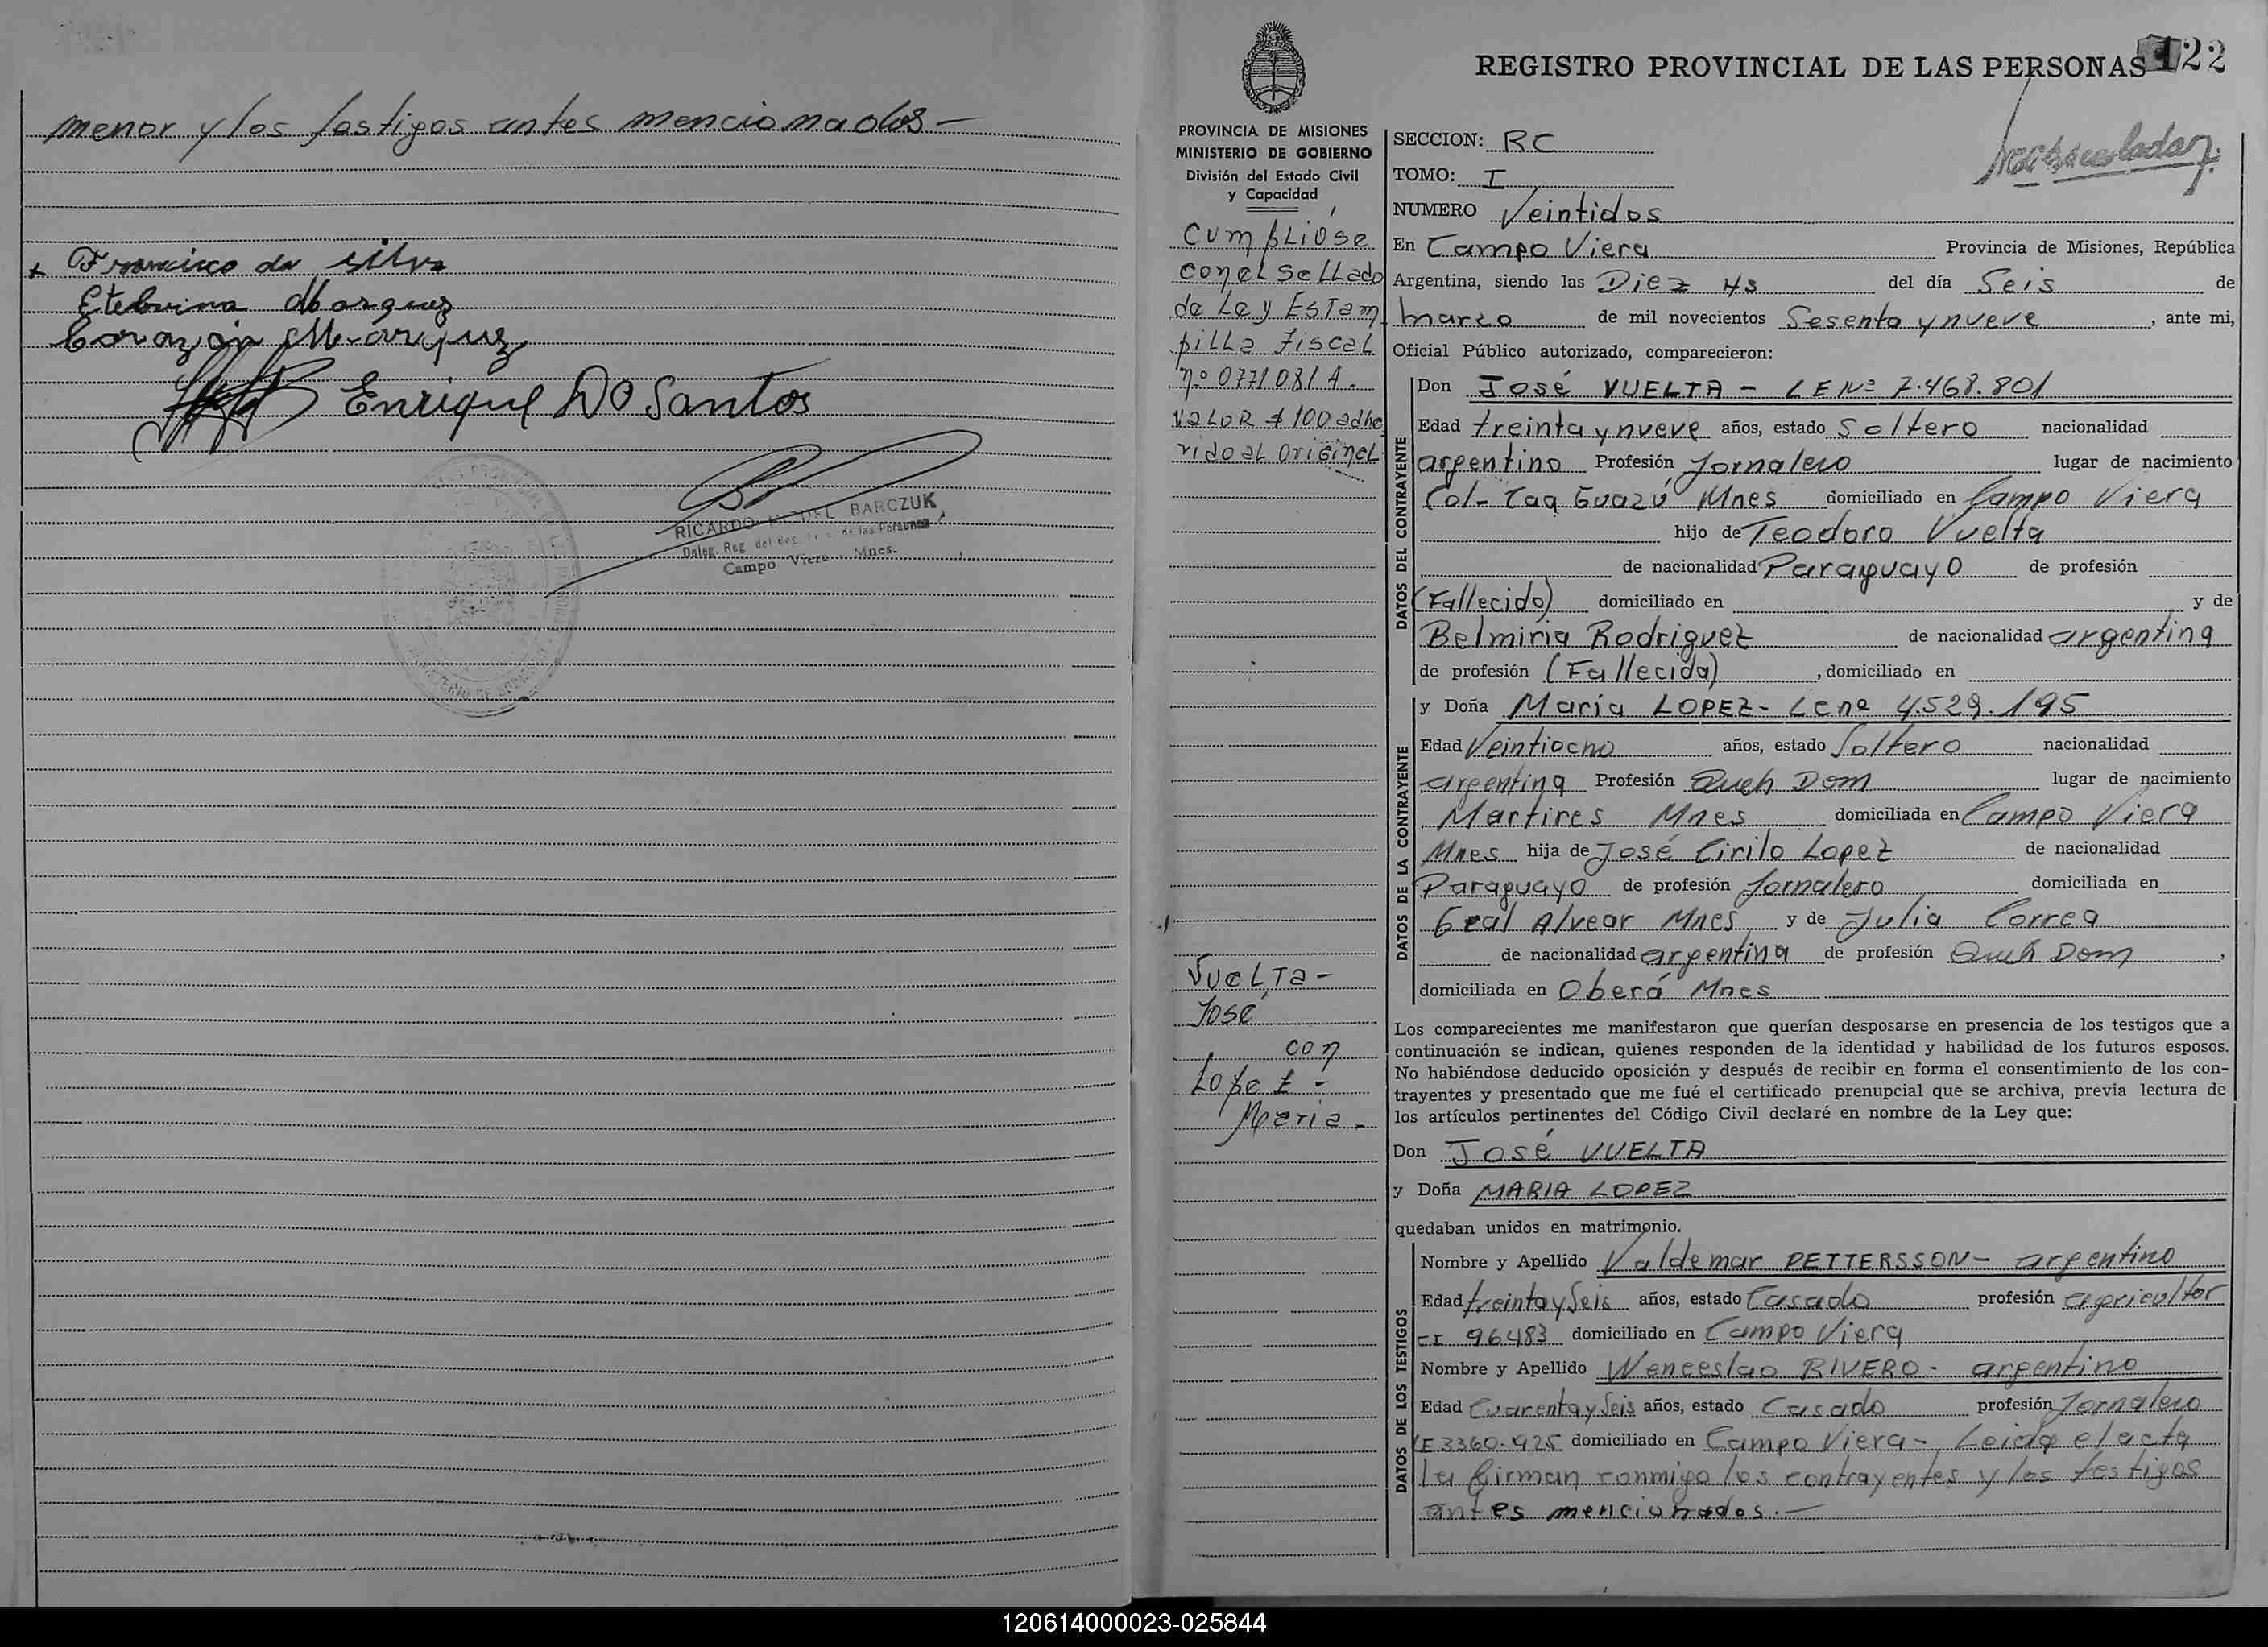 menor y los testigos antes mencionados -
Francisco da silva
Etelvina Marquez
Corazón Márquez
Enrique Do Santos
RICARDO MIGUEL BARCZUK
Deleg. Reg. del Reg. de las Personas
Campo Viera Mnes.
REGISTRO PROVINCIAL DE LAS PERSONAS 122
PROVINCIA DE MISIONES
MINISTERIO DE GOBIERNO
División del Estado Civil
y Capacidad
CUMPLIÓSE
con el sellado
de Ley ESTAM
pilla Fiscal
nº 0771081 A.
VALOR $ 100 adhe
rido al original
VUELTA -
José
con
Lopez -
Maria -
SECCION: RC
TOMO: I
NUMERO Veintidos
En Campo Viera Provincia de Misiones, República
Argentina, siendo las Diez Hs del día Seis de
marzo de mil novecientos Sesenta y nueve, ante mi,
Oficial Público autorizado, comparecieron:
DATOS DEL CONTRAYENTE
Don José VUELTA - LE Nº 7.468.801
Edad treinta y nueve años, estado Soltero nacionalidad
argentino Profesión Jornalero lugar de nacimiento
Col- Taq Guazú Mnes domiciliado en Campo Viera
hijo de Teodoro Vuelta
de nacionalidad Paraguayo de profesión
(Fallecido) domiciliado en y de
Belmiria Rodriguez de nacionalidad argentina
de profesión (Fallecida), domiciliado en
DATOS DE LA CONTRAYENTE
y Doña Maria LOPEZ - Lc nº 4.529.195
Edad Veintiocho años, estado Soltero nacionalidad
argentina Profesión Queh Dom lugar de nacimiento
Martires Mnes domiciliada en Campo Viera
Mnes hija de José Cirilo Lopez de nacionalidad
Paraguayo de profesión Jornalero domiciliada en
Gral Alvear Mnes y de Julia Correa
de nacionalidad argentina de profesión Queh Dom,
domiciliada en Oberá Mnes
Los comparecientes me manifestaron que querían desposarse en presencia de los testigos que a
continuación se indican, quienes responden de la identidad y habilidad de los futuros esposos.
No habiéndose deducido oposición y después de recibir en forma el consentimiento de los con-
trayentes y presentado que me fué el certificado prenupcial que se archiva, previa lectura de
los artículos pertinentes del Código Civil declaré en nombre de la Ley que:
Don José VUELTA
y Doña MARIA LOPEZ
quedaban unidos en matrimonio.
DATOS DE LOS TESTIGOS
Nombre y Apellido Valdemar PETTERSSON - argentino
Edad treinta y Seis años, estado Casado profesión agricultor
CI 96483 domiciliado en Campo Viera
Nombre y Apellido Wenceslao RIVERO - argentino
Edad Cuarenta y Seis años, estado Casado profesión Jornalero
LE 3360.925 domiciliado en Campo Viera - Leida el acta
la firman conmigo los contrayentes y los testigos
antes mencionados. -
120614000023-025844